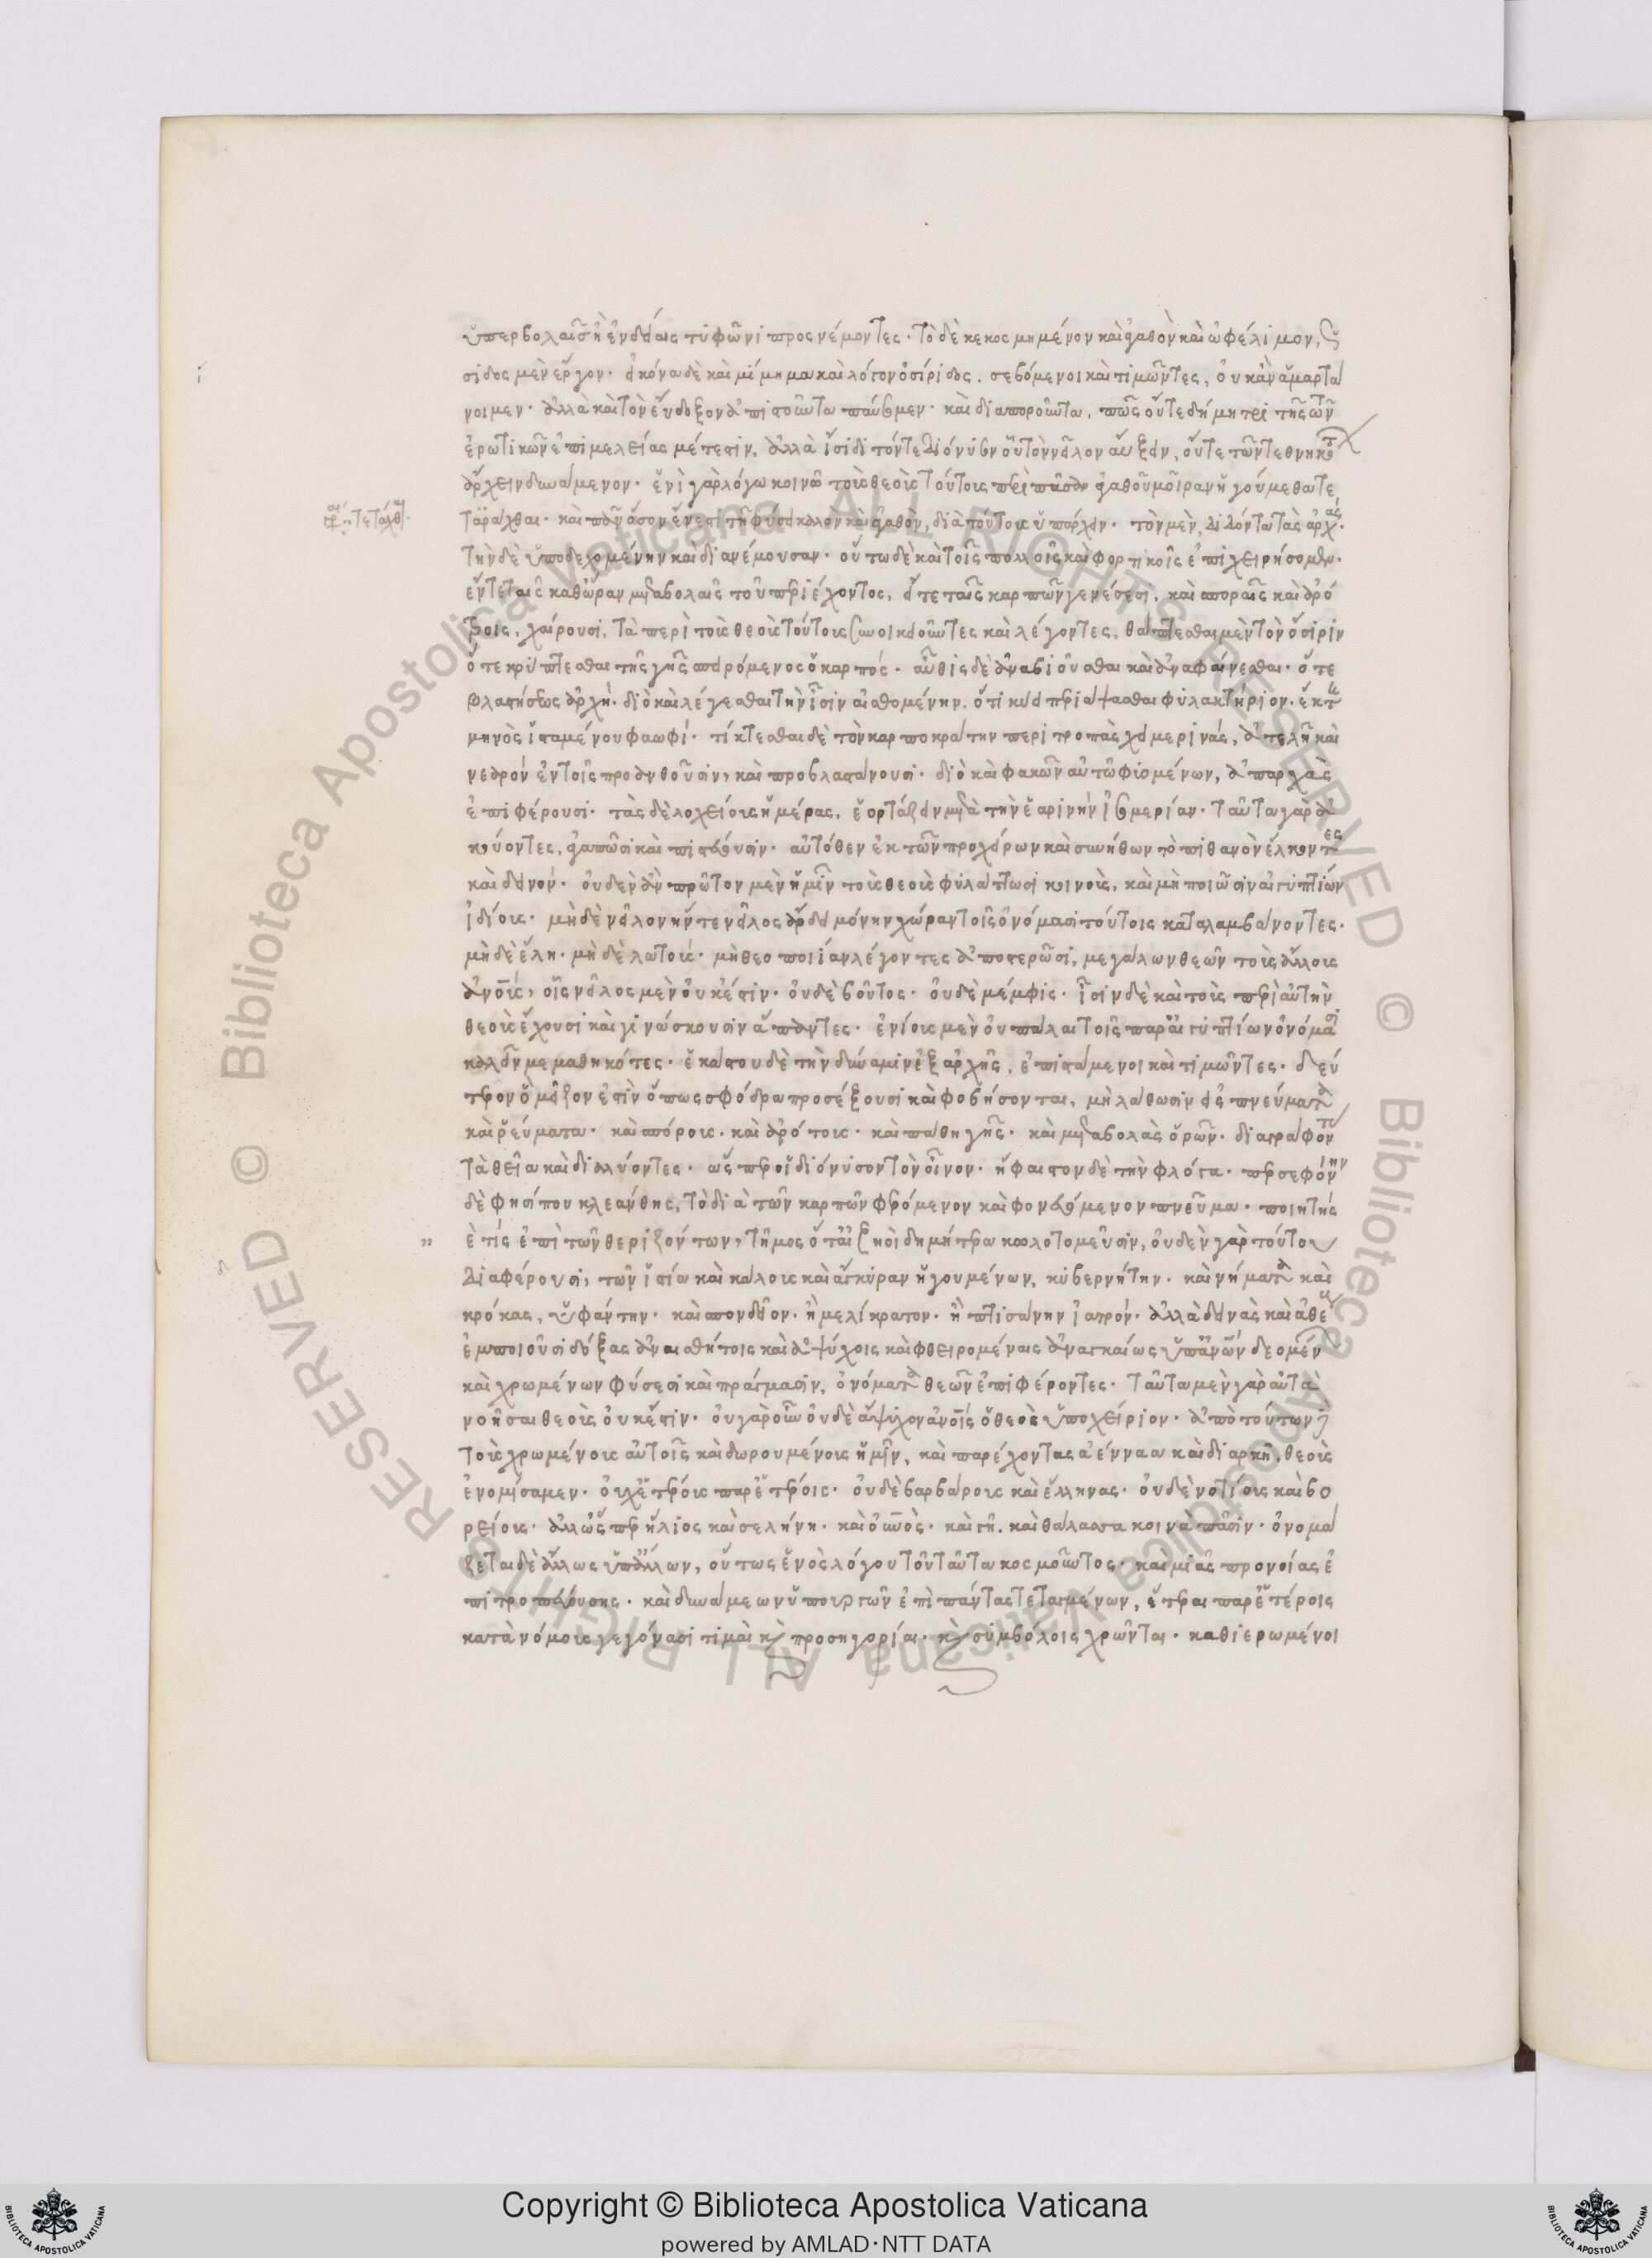 ὑπερβολαῖς ἢ ἐνδείαις τυφῶνι προσνέμοντες· τὸ δὲ κεκοσμημένον καὶ ἀγαθὸν καὶ ὠφέλιμον,
σιδος μὲν ἔργον· εἰκόνα δὲ καὶ μίμημα καὶ λόγον ὀσίριδος. σεβόμενοι καὶ τιμῶντες, οὐκ ἂν ἁμαρτά
νοιμεν· ἀλλὰ καὶ τὸν εὔδοξον ἀπιστοῦντα παύσομεν· καὶ διαποροῦντα, πῶς οὔτε δήμητρι τῆς τῶν
ἐρωτικῶν ἐπιμελείας μέτεστιν, ἀλλὰ ἴσιδι τόν τε διόνυσον οὐ τὸν νεῖλον αὔξειν, οὔτε τῶν τεθνηκότ
ἄρχειν δυνάμενον· ἑνὶ γὰρ λόγω κοινῶ τοὺς θεοὺς τούτους περὶ πᾶσαν ἀγαθοῦ μοῖραν ἡγούμεθα τε
τάραχθαι· καὶ πᾶν ὅσον ἔνεστι τῆ φύσει καλὸν καὶ ἀγαθὸν, διὰ τούτους ὑπάρχειν· τὸν μὲν, διδόντα τὰς ἀρχάς·
τὴν δὲ ὑποδεχομένην καὶ διανέμουσαν· οὕτω δὲ καὶ τοῖς πολλοῖς καὶ φορτικοῖς ἐπιχειρήσομεν·
ἔν τε ταῖς καθ' ὥραν μεταβολαῖς τοῦ περιέχοντος, εἴτε ταῖς καρπῶν γενέσεσι. καὶ σποραῖς καὶ ἀρό
τοις, χαίρουσι, τὰ περὶ τοὺς θεοὺς τούτους συνοικειοῦντες καὶ λέγοντες, θάπτεσθαι μὲν τὸν ὄσιριν
ὅτε κρύπτεσθαι τῆς γῆς σπειρόμενος ὁ καρπός· αὖθις δὲ ἀναβιοῦσθαι καὶ ἀναφαίνεσθαι· ὅτε
βλαστήσεως ἀρχή· διὸ καὶ λέγεσθαι τὴν ἴσιν αἰσθομένην. ὅτι κύει περιάψασθαι φυλακτήριον· ἕκτη
μηνὸς ἱσταμένου φαωφί· τίκτεσθαι δὲ τὸν καρποκράτην περὶ τροπὰς χειμερινάς, ἀτελῆ καὶ
νεαρὸν ἐν τοῖς προανθοῦσιν, καὶ προβλαστάνουσι· διὸ καὶ φακῶν αὐτῶ φυομένων, ἀπαρχὰς
ἐπιφέρουσι· τὰς δὲ λοχείους ἡμέρας, ἑορτάζειν μετὰ τὴν ἐαρινὴν ἰσημερίαν· ταῦτα γὰρ ἀ
κούοντες, ἀγαπῶσι καὶ πιστεύουσιν· αὐτόθεν ἐκ τῶν προχείρων καὶ συνήθων τὸ πιθανὸν ἕλκοντες
καὶ δεινόν· οὐδὲν ἂν πρῶτον μὲν ἡμῖν τοὺς θεοὺς φυλάττωσι κοινούς, καὶ μὴ ποιῶσιν αἰγυπτίων
ἰδίους· μὴ δὲ νεῖλον ἥν τε νεῖλος ἄρδει μόνην χώραν τοῖς ὀνόμασι τούτοις καταλαμβάνοντες·
μὴ δὲ ἕλη· μὴ δὲ λωτούς· μὴ θεοποιίαν λέγοντες ἀποστερῶσι, μεγάλων θεῶν τοὺς ἄλλους
ἀνους, οἷς νεῖλος μὲν οὐκ ἔστιν· οὐδὲ βοῦτος· οὐδὲ μέμφις· ἶσιν δὲ καὶ τοὺς περὶ αὐτὴν
θεοὺς ἔχουσι καὶ γινώσκουσιν ἅπαντες· ἐνίους μὲν οὐ πάλαι τοῖς παρ' αἰγυπτίων ὀνόμασι
καλεῖν μεμαθηκότες· ἑκάστου δὲ τὴν δύναμιν ἐξ ἀρχῆς, ἐπιστάμενοι καὶ τιμῶντες· δεύ
τερον ὃ μεῖζον ἐστὶν ὅπως σφόδρα προσέξουσι καὶ φοβήσονται, μὴ λάθωσιν εἰς πνεύματα
καὶ ῥεύματα· καὶ σπόρους. καὶ ἀρότους· καὶ πάθη γῆς· καὶ μεταβολὰς ὡρῶν· διαγράφοντ
τὰ θεῖα καὶ διαλύοντες· ὥσπερ οἱ διόνυσον τὸν οἶνον· ἥφαιστον δὲ τὴν φλόγα· περσεφόνην
δὲ φησί που κλεάνθης, τὸ διὰ τῶν καρπῶν φερόμενον καὶ φονευόμενον πνεῦμα· ποιητὴς
„ ἔ τις ἐπὶ τῶν θεριζόντων, τῆμος ὅτ' αἰζηοὶ δημήτρα κωλοτομεῦσιν, οὐδὲν γὰρ τούτων
διαφέρουσι, τῶν ἱστία καὶ κάλους καὶ ἄγκυραν ἡγουμένων, κυβερνήτην· καὶ νήματα καὶ
κρόκας, ὑφάντην· καὶ σπονδεῖον· ἢ μελίκρατον· ἢ πτισάνην ἰατρόν· ἀλλὰ δεινὰς καὶ ἀθέ
ἐμποιοῦσι δόξας ἀναισθήτοις καὶ ἀψύχοις καὶ φθειρομέναις ἀναγκαίως ὑπ' ἀνων δεομέν
καὶ χρωμένων φύσεσι καὶ πράγμασιν, ὀνόματα θεῶν ἐπιφέροντες· ταῦτα μὲν γὰρ αὐτὰ
νοῆσαι θεοὺς οὐκ ἔστιν· οὐ γὰρ οὖν οὐδὲ ἄψυχον ἀνοις ὁ θεὸς ὑποχείριον· ἀπὸ τούτων
τοὺς χρωμένους αὐτοῖς καὶ δωρουμένους ἡμῖν, καὶ παρέχοντας ἀένναα καὶ διαρκῆ, θεοὺς
ἐνομίσαμεν· οὐχ ἑτέρους παρ' ἑτέροις· οὐδὲ βαρβάρους καὶ ἕλληνας· οὐδὲ νοτίους καὶ βο
ρείους· ἀλλ' ὥσπερ ἥλιος καὶ σελήνη· καὶ οὐνος· καὶ γῆ. καὶ θάλασσα κοινὰ πᾶσιν· ὀνομά
ζεται δὲ ἄλλως ὑπ' ἄλλων, οὕτως ἑνὸς λόγου τοῦ ταῦτα κοσμοῦντος· καὶ μιᾶς προνοίας ἐ
πιτροπευούσης· καὶ δυνάμεων ὑπουργῶν ἐπὶ πάντας τεταγμένων, ἕτεραι παρ' ἑτέροις
κατὰ νόμους γεγόνασι τιμαὶ κ προσηγορίαι· κ συμβόλοις χρῶνται· καθιερωμένοι
Copyright © Biblioteca Apostolica Vaticana
powered by AMLAD·NTT DATA